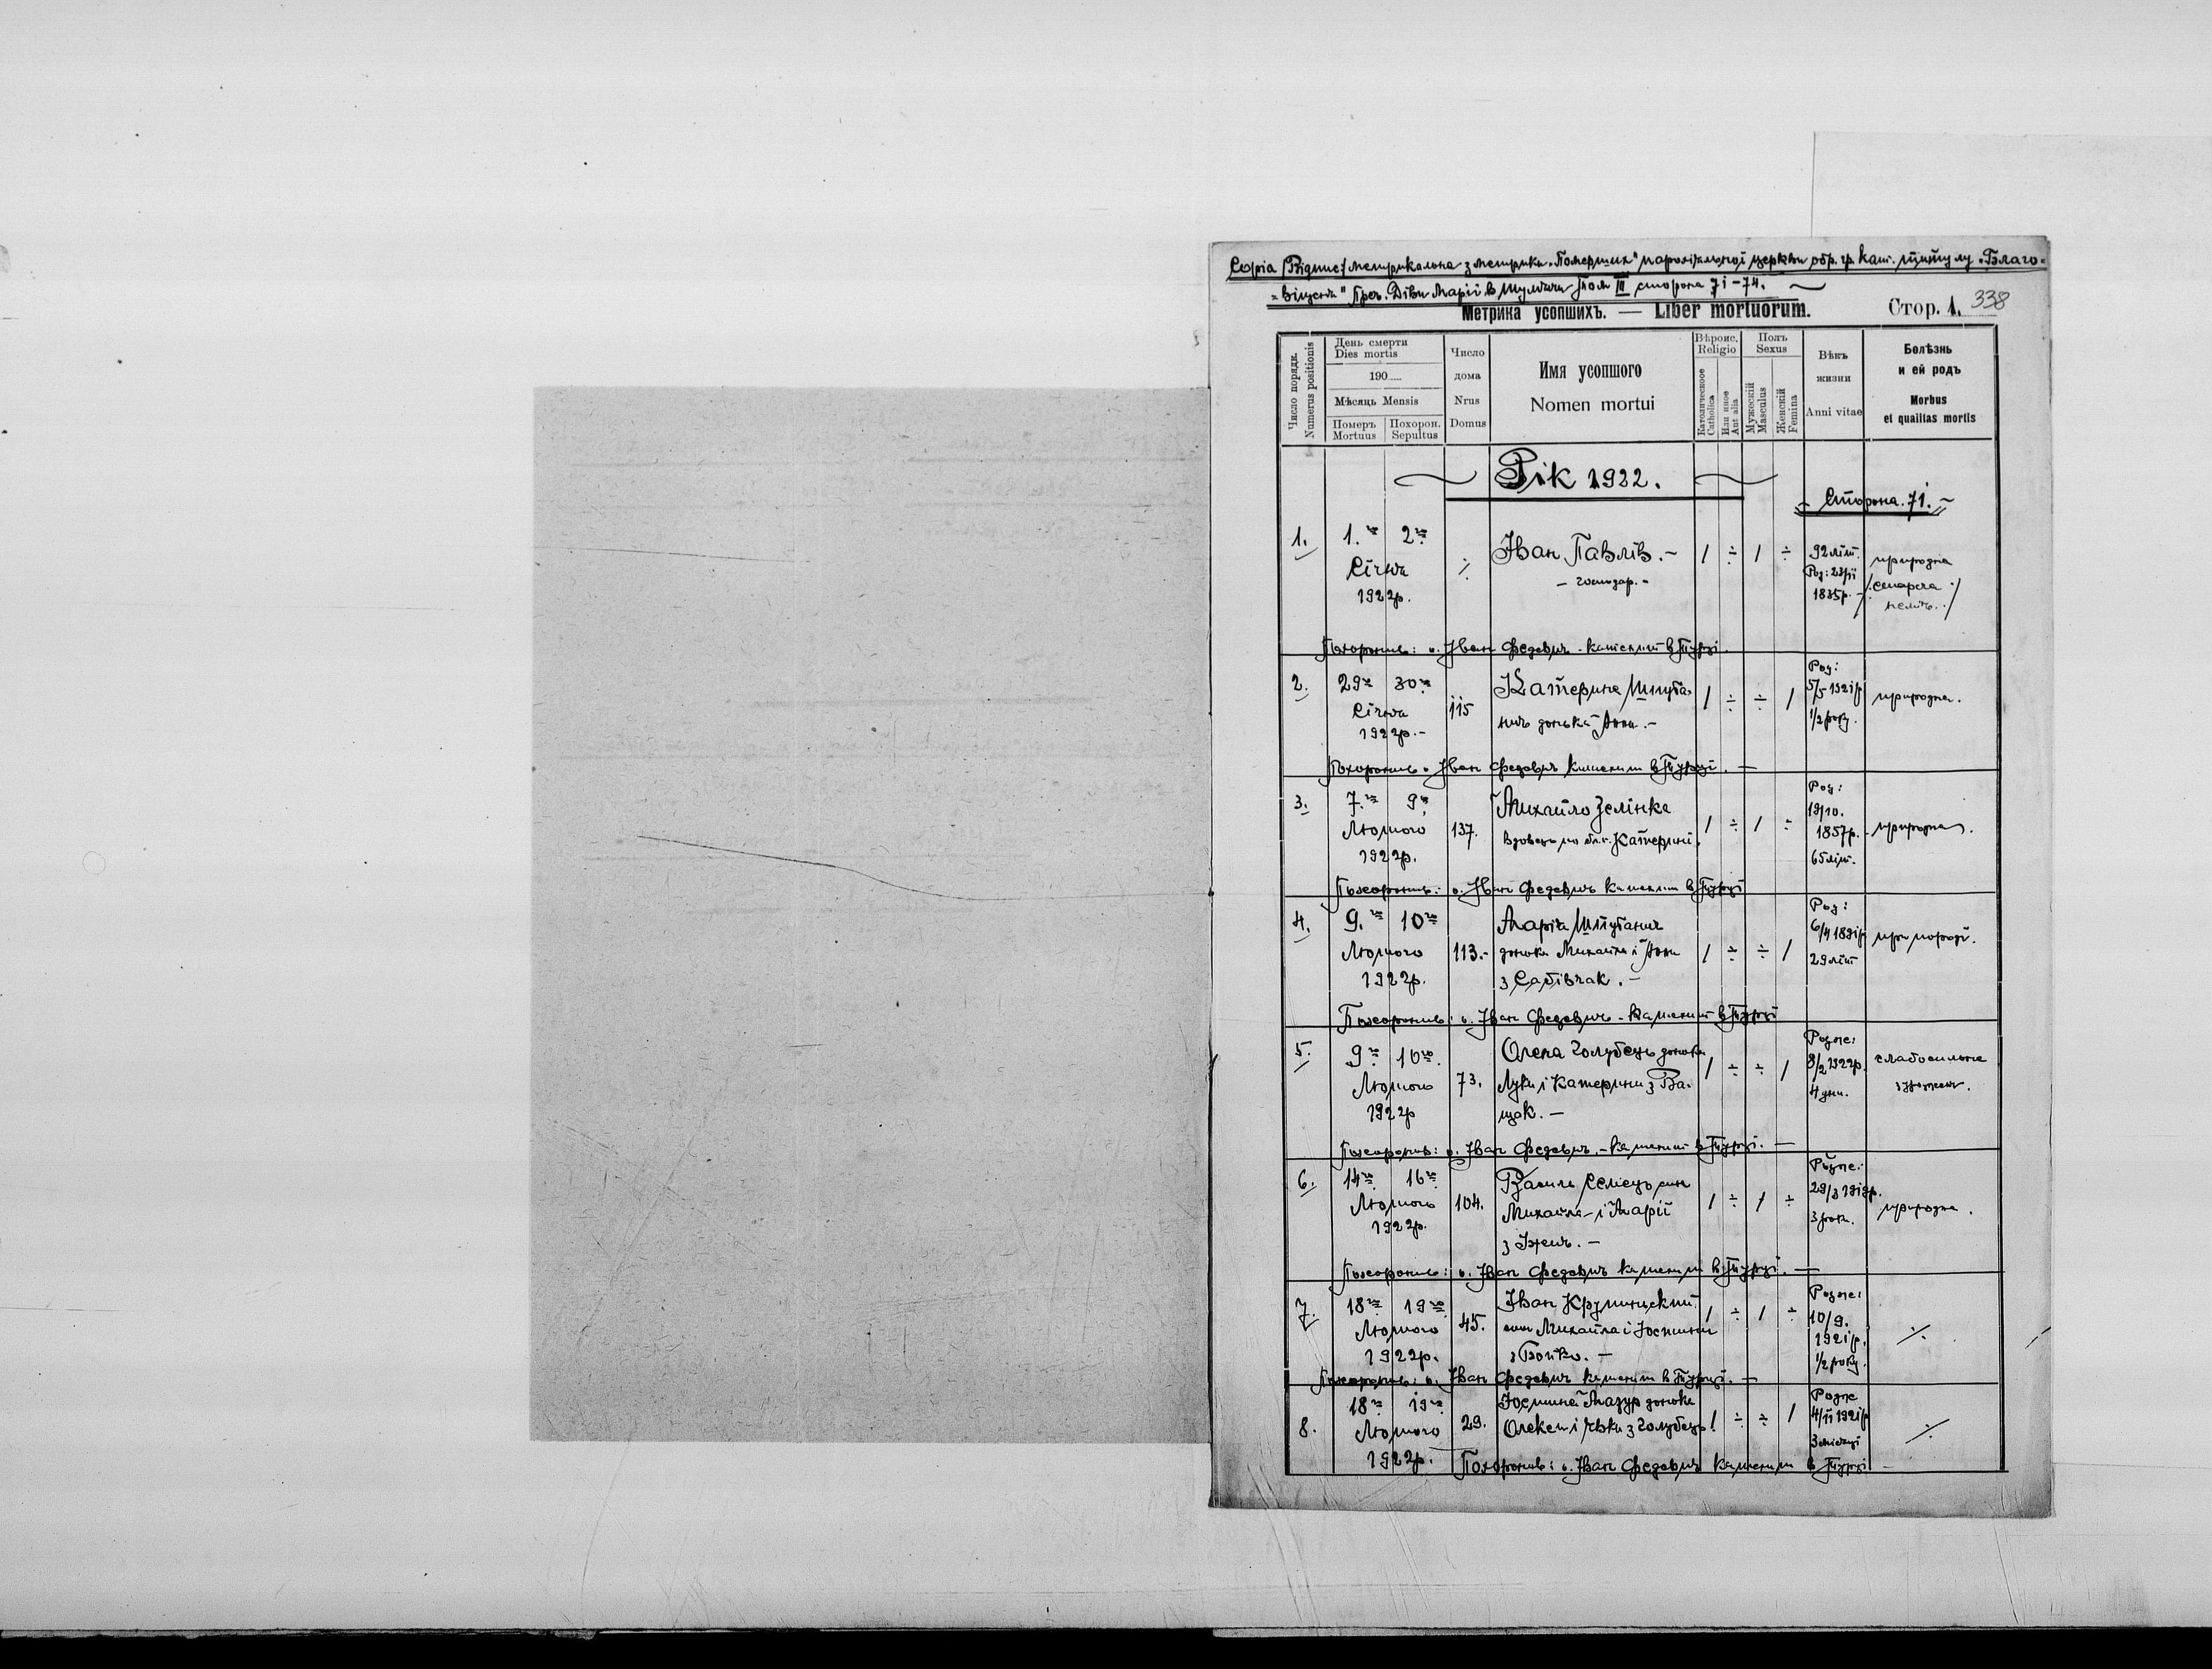 Copia /Відпис/ метрикальна з метрики „Померших" парохіяльної церкви обр. гр. кат. титулу „Благо-
-віщення" Преч. Діви Марії в Том III сторона 71-74.
Метрика усопшихъ. — Liber mortuorum.
Стор. 1. 338
Число порядк.
Numerus positionis
День смерти
Dies mortis
190.....
Мѣсяць Mensis
Померъ
Mortuus
Похорон.
Sepultus
Число
дома
Nrus
Domus
Имя усопшого
Nomen mortui
Вѣроис.
Religio
Католическое
Catholica
Или иное
Aut alia
Полъ
Sexus
Мужескій
Masculus
Женскій
Femina
Вѣкъ
жизни
Anni vitae
Болѣзнь
и ей родъ
Morbus
et qualitas mortis
Рік 1922.
Сторона 71.
1. 1.го 2го Січня 1922р.
Іван Павлів. -
- господар. -
1 ÷ 1 ÷
92 літ.
1835р.
природна
/:старча
:/
Похоронив: о. Іван Федевич - катехит в Турці.
2. 29го 30го Січня 1922р. -
115
Катерина Шпуга-
нич донька Анни. -
1 ÷ ÷ 1
Род:
5/5 1921р
1/2 року.
природна.
Похоронив о. Іван Федевич катехит в Турці. —
3. 7.го 9го Лютого 1922р.
137.
Михайло Зелінка
вдовець по бл.п. Катерині.
1 ÷ 1 ÷
Род:
19/10.
1857р.
65 літ.
природна.
Похоронив: о. Іван Федевич катехит в Турці
4. 9.го 10го Лютого 1922р.
113. -
Марія Шпуганич
донька Михайла і Анни
з Сабівчак. -
1 ÷ ÷ 1
Род:
29 літ
при породі.
Похоронив: о. Іван Федевич - катехит в Турці
5. 9го 10го Лютого 1922р
73.
Олена Голубець донька
Луки і Катерини з Ва-
щак. —
1 ÷ ÷ 1
Родже:
8/2 1922р.
4 дни.
слабосильна
Похоронив: о. Іван Федевич. - катехит в Турці. —
6. 14го 16го Лютого 1922р.
104.
Василь Селієць син
Михайла і Марії
з Іжик. -
1 ÷ 1 ÷
Родже:
3 роки.
природна.
Похоронив: о. Іван Федевич катехит в Турці. —
7. 18го 19го Лютого 1922р.
45.
Іван
син Михайла і Юстини
з Бойко. —
1 ÷ 1 ÷
Родже:
10/9.
1921р.
1/2 року.
÷
Похоронив: о. Іван Федевич катехит в Турці. —
8. 18го 19го Лютого 1922р.
29.
Юстина Мазур донька
Олекси і з Голубець.
1 ÷ ÷ 1
Родже
4/11 1921р
3 місяці
÷
Похоронив: о. Іван Федевич катехит в Турці -